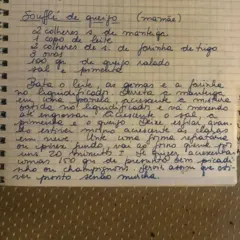 Soufflé de queijo (mamãe)
2 colheres s. de manteiga
1 copo de leite
2 colheres s. de farinha de trigo
3 ovos
100 gr de queijo ralado
sal e pimenta
Bata o leite, as gemas e a farinha
no liquidificador. Derreta a manteiga
em uma panela, acrescente a mistura
batida no liquidificador e vá mexendo
até engrossar. Acrescente o sal, a
pimenta e o queijo. Deixe esfriar, quan-
do estiver morno acrescente as claras
em neve. Unte uma forma refratária
ou pirex fundo, vai ao forno quente por
uns 20 minutos. Se quiser acrescentar
umas 150 gr de presunto bem picadi-
nho ou champignons.
ver pronto